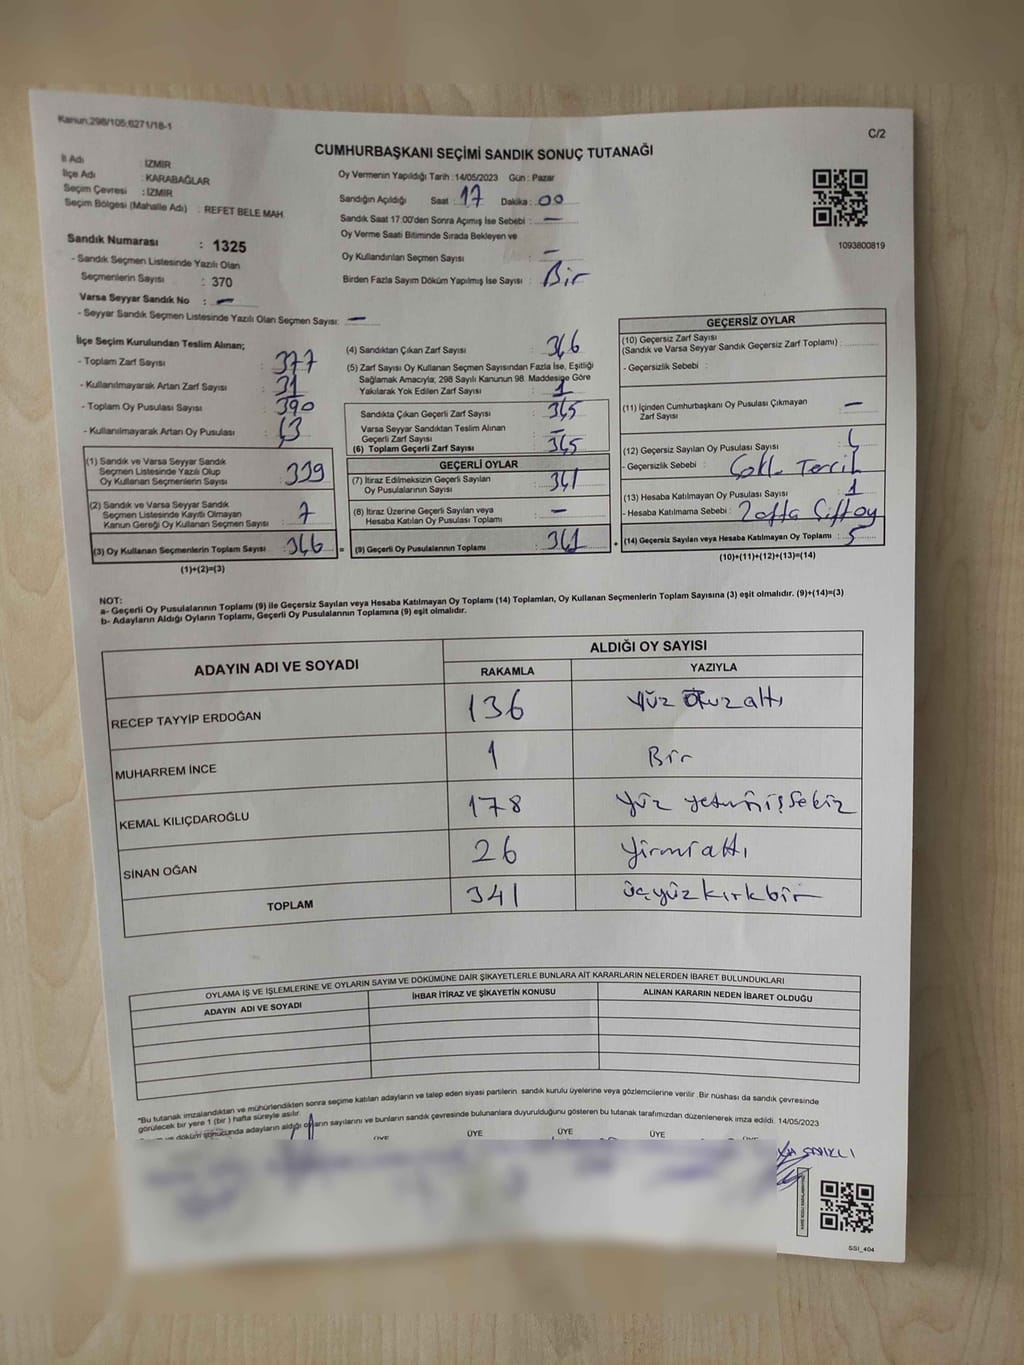 Kanun:298/105;6271/18-1
C/2
CUMHURBAŞKANI SEÇİMİ SANDIK SONUÇ TUTANAĞI
İl Adı : İZMİR
İlçe Adı : KARABAĞLAR
Seçim Çevresi : İZMİR
Seçim Bölgesi (Mahalle Adı) : REFET BELE MAH.
Oy Vermenin Yapıldığı Tarih :14/05/2023 Gün : Pazar
Sandığın Açıldığı Saat : 17 Dakika : 00
Sandık Saat 17:00'den Sonra Açımış İse Sebebi : —
Oy Verme Saati Bitiminde Sırada Bekleyen ve
Oy Kullandırılan Seçmen Sayısı : —
Birden Fazla Sayım Döküm Yapılmış İse Sayısı : Bir
1093800819
Sandık Numarası : 1325
- Sandık Seçmen Listesinde Yazılı Olan
Seçmenlerin Sayısı : 370
Varsa Seyyar Sandık No : —
- Seyyar Sandık Seçmen Listesinde Yazılı Olan Seçmen Sayısı: —
İlçe Seçim Kurulundan Teslim Alınan;
- Toplam Zarf Sayısı : 377
- Kullanılmayarak Artan Zarf Sayısı : 31
- Toplam Oy Pusulası Sayısı : 390
- Kullanılmayarak Artan Oy Pusulası :
(1) Sandık ve Varsa Seyyar Sandık
Seçmen Listesinde Yazılı Olup
Oy Kullanan Seçmenlerin Sayısı : 339
(2) Sandık ve Varsa Seyyar Sandık
Seçmen Listesinde Kayıtlı Olmayan
Kanun Gereği Oy Kullanan Seçmen Sayısı : 7
(3) Oy Kullanan Seçmenlerin Toplam Sayısı : 346 =
(1)+(2)=(3)
(4) Sandıktan Çıkan Zarf Sayısı : 346
(5) Zarf Sayısı Oy Kullanan Seçmen Sayısından Fazla İse, Eşitliği
Sağlamak Amacıyla; 298 Sayılı Kanunun 98. Maddesine Göre
Yakılarak Yok Edilen Zarf Sayısı : 1
Sandıkta Çıkan Geçerli Zarf Sayısı : 345
Varsa Seyyar Sandıktan Teslim Alınan
Geçerli Zarf Sayısı : —
(6) Toplam Geçerli Zarf Sayısı : 345
GEÇERLİ OYLAR
(7) İtiraz Edilmeksizin Geçerli Sayılan
Oy Pusulalarının Sayısı : 341
(8) İtiraz Üzerine Geçerli Sayılan veya
Hesaba Katılan Oy Pusulası Toplamı : —
(9) Geçerli Oy Pusulalarının Toplamı : 341 +
GEÇERSİZ OYLAR
(10) Geçersiz Zarf Sayısı
(Sandık ve Varsa Seyyar Sandık Geçersiz Zarf Toplamı) :
- Geçersizlik Sebebi :
(11) İçinden Cumhurbaşkanı Oy Pusulası Çıkmayan
Zarf Sayısı : —
(12) Geçersiz Sayılan Oy Pusulası Sayısı :
- Geçersizlik Sebebi : Çoklu Tercih
(13) Hesaba Katılmayan Oy Pusulası Sayısı : 1
- Hesaba Katılmama Sebebi : Zafta Çift oy
(14) Geçersiz Sayılan veya Hesaba Katılmayan Oy Toplamı : 5
(10)+(11)+(12)+(13)=(14)
NOT:
a- Geçerli Oy Pusulalarının Toplamı (9) ile Geçersiz Sayılan veya Hesaba Katılmayan Oy Toplamı (14) Toplamları, Oy Kullanan Seçmenlerin Toplam Sayısına (3) eşit olmalıdır. (9)+(14)=(3)
b- Adayların Aldığı Oyların Toplamı, Geçerli Oy Pusulalarının Toplamına (9) eşit olmalıdır.
ADAYIN ADI VE SOYADI
ALDIĞI OY SAYISI
RAKAMLA YAZIYLA
RECEP TAYYİP ERDOĞAN 136 Yüz Otuz altı
MUHARREM İNCE 1 Bir
KEMAL KILIÇDAROĞLU 178 Yüz yetmiş sekiz
SİNAN OĞAN 26 Yirmi altı
TOPLAM 341 üçyüz kırk bir
OYLAMA İŞ VE İŞLEMLERİNE VE OYLARIN SAYIM VE DÖKÜMÜNE DAİR ŞİKAYETLERLE BUNLARA AİT KARARLARIN NELERDEN İBARET BULUNDUKLARI
ADAYIN ADI VE SOYADI İHBAR İTİRAZ VE ŞİKAYETİN KONUSU ALINAN KARARIN NEDEN İBARET OLDUĞU
*Bu tutanak imzalandıktan ve mühürlendikten sonra seçime katılan adayların ve talep eden siyasi partilerin sandık kurulu üyelerine veya gözlemcilerine verilir. Bir nüshası da sandık çevresinde
görülecek bir yere 1 (bir) hafta süreyle asılır.
ve döküm sonucunda adayların aldığı oyların sayılarını ve bunların sandık çevresinde bulunanlara duyurulduğunu gösteren bu tutanak tarafımızdan düzenlenerek imza edildi. 14/05/2023
ÜYE ÜYE ÜYE ÜYE ÜYE
SSI_404